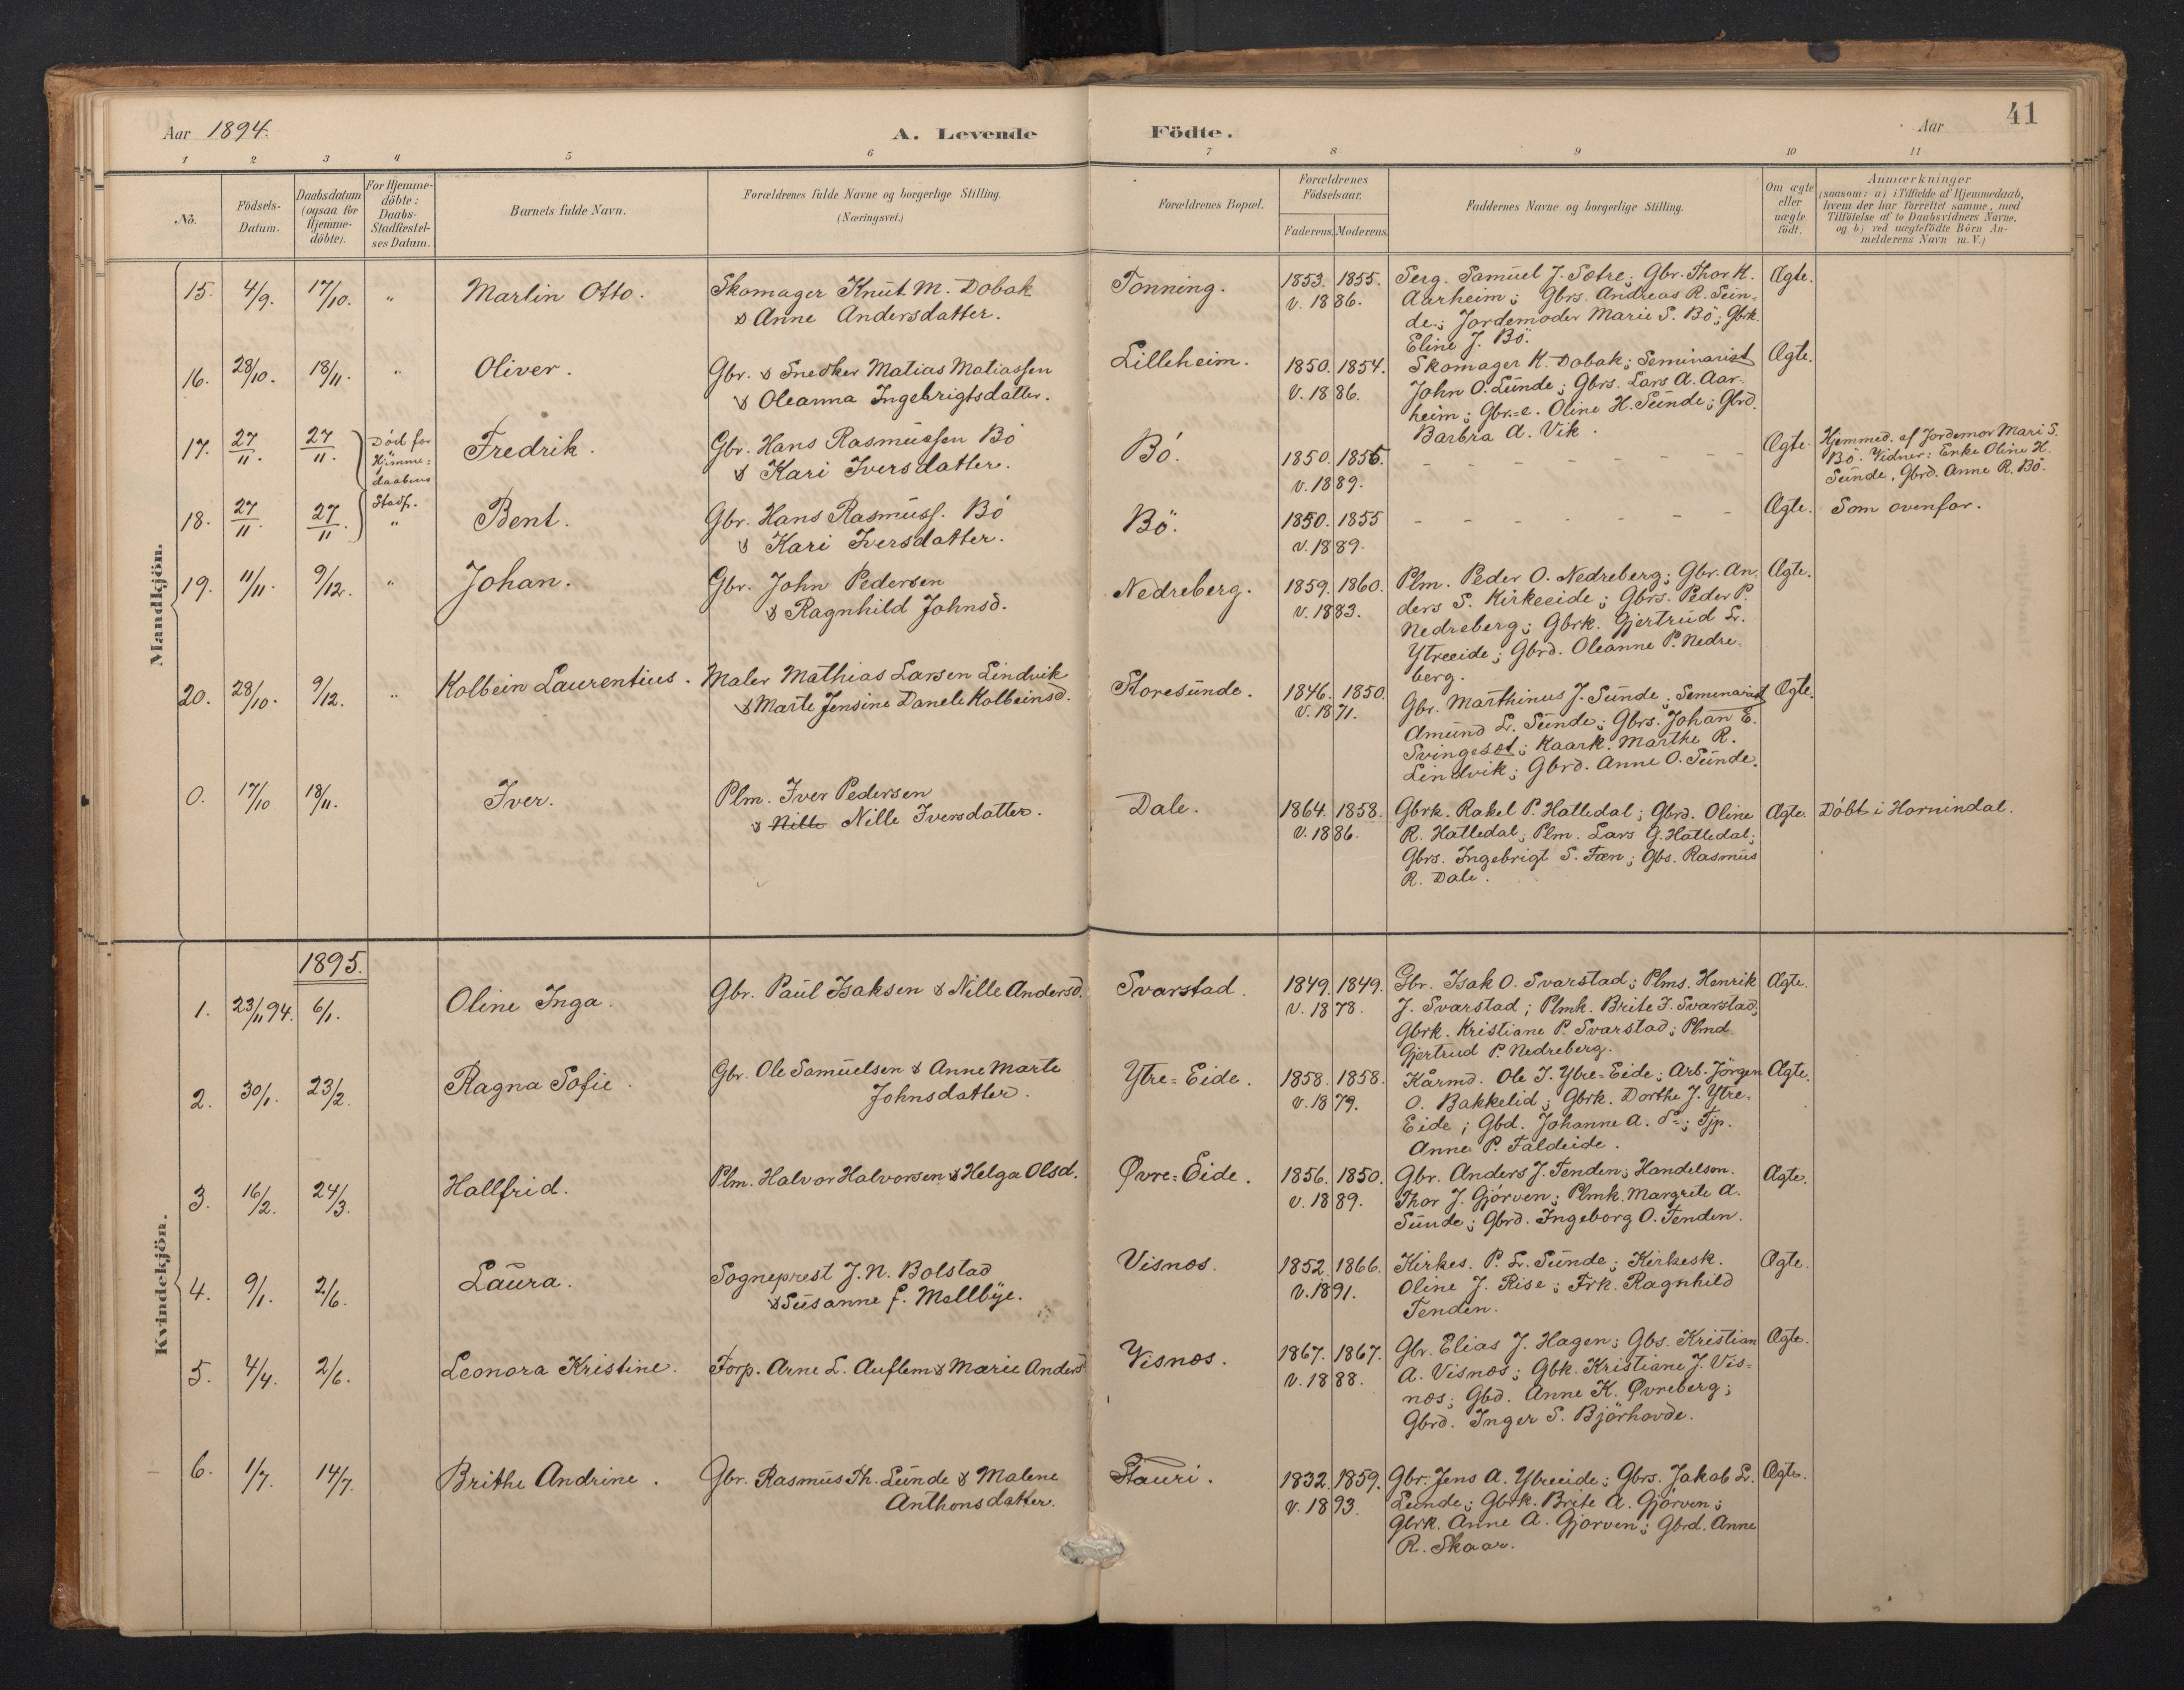 41
Aar 1894.
A. Levende Födte.
Aar
1 2 3 4 5 6 7 8 9 10 11
No.
Födsels-
Datum.
Daabsdatum
(ogsaa for
Hjemme-
döbte).
For Hjemme-
döbte:
Daabs-
Stadfæstel-
ses Datum.
Barnets fulde Navn.
Forældrenes fulde Navne og borgerlige Stilling.
(Næringsvei.)
Forældrenes Bopæl.
Forældrenes
Födselsaar.
Faderens. Moderens.
Faddernes Navne og borgerlige Stilling.
Om ægte
eller
uægte
födt.
Anmærkninger
(saasom: a) i Tilfælde af Hjemmedaab,
hvem der har forrettet samme, med
Tilföielse af to Daabsvidners Navne.
og b) ved uægtefödte Börn An-
melderens Navn m. V.)
Mandkjön.
15. 4/9. 17/10. " Martin Otto.
Skomager Knut M. Dobak
& Anne Andersdatter.
Tonning.
1853. 1855.
v. 1886.
Serg. Samuel J. Sætre; Gbr. Thor K.
Aarheim; Gbrs. Andreas R. Sun-
de; Jordemoder Marie S. Bö; Gbrk.
Eline J. Bö.
Ægte.
16. 28/10. 18/11. " Oliver.
Gbr. & Snedker Matias Matiassen
& Oleanna Ingebrigtsdatter.
Lilleheim.
1850. 1854.
v. 1886.
Skomager K. Dobak; Seminarist
John O. Lunde; Gbrs. Lars A. Aar-
heim; Gbr.-e. Oline H. Sunde; Gbrd.
Barbra A. Vik.
Ægte.
17. 27/11. 27/11.
Död før
Hjemme-
daabens
Stadf.
Fredrik.
Gbr. Hans Rasmussen Bö
& Kari Iversdatter.
Bö.
1850. 1855.
v. 1889.
- - - - - - - -
Ægte.
Hjemmed. af Jordemor Mari S.
Bö. Vidner: Enke Oline H.
Sunde, Gbrd. Anne R. Bö.
18. 27/11. 27/11. " Bent.
Gbr. Hans Rasmuss. Bö
& Kari Iversdatter.
Bö.
1850. 1855
v. 1889.
- - - - - - - -
Ægte.
Som ovenfor.
19. 11/11. 9/12. " Johan.
Gbr. John Pedersen
& Ragnhild Johnsd.
Nedreberg.
1859. 1860.
v. 1883.
Plm. Peder O. Nedreberg; Gbr. An-
ders S. Kirkeeide; Gbrs. Peder P.
Nedreberg; Gbrk. Gjertrud L.
Ytreeide; Gbrd. Oleanne P. Nedre-
berg.
Ægte.
20. 28/10. 9/12. " Kolbein Laurentius.
Maler Mathias Larsen Lindvik
& Marte Jensine Danele Kolbeinsd.
Storesunde.
1846. 1850.
v. 1871.
Gbr. Marthinus J. Sunde; Seminarist
Amund L. Sunde; Gbrs. Johan E.
Svingesæt; Kaark. Marthe R.
Lindvik; Gbrd. Anne O. Sunde.
Ægte.
0. 17/10 18/11. Iver.
Plm. Iver Pedersen
& Nille Nille Iversdatter.
Dale.
1864. 1858.
v. 1886.
Gbrk. Rakel P. Hatledal; Gbrd. Oline
R. Hatledal; Plm. Lars G. Hatledal;
Gbrs. Ingebrigt S. Fæn; Gbs. Rasmus
R. Dale.
Ægte.
Döbt i Hornindal.
Kvindekjön.
1895.
1. 23/11 94. 6/1. Oline Inga.
Gbr. Paul Isaksen & Nille Andersd.
Svarstad.
1849. 1849.
v. 1878.
Gbr. Isak O. Svarstad; Plms. Henrik
J. Svarstad; Plmk. Brite I. Svarstad;
Gbrk. Kristiane P. Svarstad; Plmd.
Gjertrud P. Nedreberg.
Ægte.
2. 30/1. 23/2. Ragna Sofie.
Gbr. Ole Samuelsen & Anne Marte
Johnsdatter.
Ytre-Eide.
1858. 1858.
v. 1879.
Kårmd. Ole J. Ytre-Eide; Arb. Jörgen
O. Bakkelid; Gbrk. Dorthe J. Ytre-
Eide; Gbd. Johanne A. do; Tjp.
Anne P. Faldeide.
Ægte.
3. 16/2. 24/3. Hallfrid.
Plm. Halvor Halvorsen & Helga Olsd.
Øvre-Eide.
1856. 1850.
v. 1889.
Gbr. Anders J. Tenden; Handelsm.
Thor J. Gjörven; Plmk. Margrete A.
Sunde; Gbrd. Ingeborg O. Tenden.
Ægte.
4. 9/1. 2/6. Laura.
Sogneprest J. N. Bolstad
& Susanne f. Mellbye.
Visnes.
1852. 1866.
v. 1891.
Kirkes. P. L. Sunde; Kirkesk.
Oline J. Rise; Frk. Ragnhild
Tenden.
Ægte.
5. 4/4. 2/6. Leonora Kristine.
Forp. Arne L. Auflem & Marie Anders
Visnes.
1867. 1867.
v. 1888.
Gbr. Elias J. Hagen; Gbs. Kristian
A. Visnes; Gbk. Kristiane J. Vis-
nes; Gbd. Anne K. Øvreberg;
Gbrd. Inger S. Björhovde.
Ægte.
6. 1/7. 14/7. Brithe Andrine.
Gbr. Rasmus Th. Lunde & Malene
Anthonsdatter.
Stauri.
1832. 1859.
v. 1893.
Gbr. Jens A. Ytreeide; Gbrs. Jakob L.
Lunde; Gbrk. Brite A. Gjörven;
Gbrk. Anne A. Gjörven; Gbrd. Anne
R. Skaar.
Ægte.